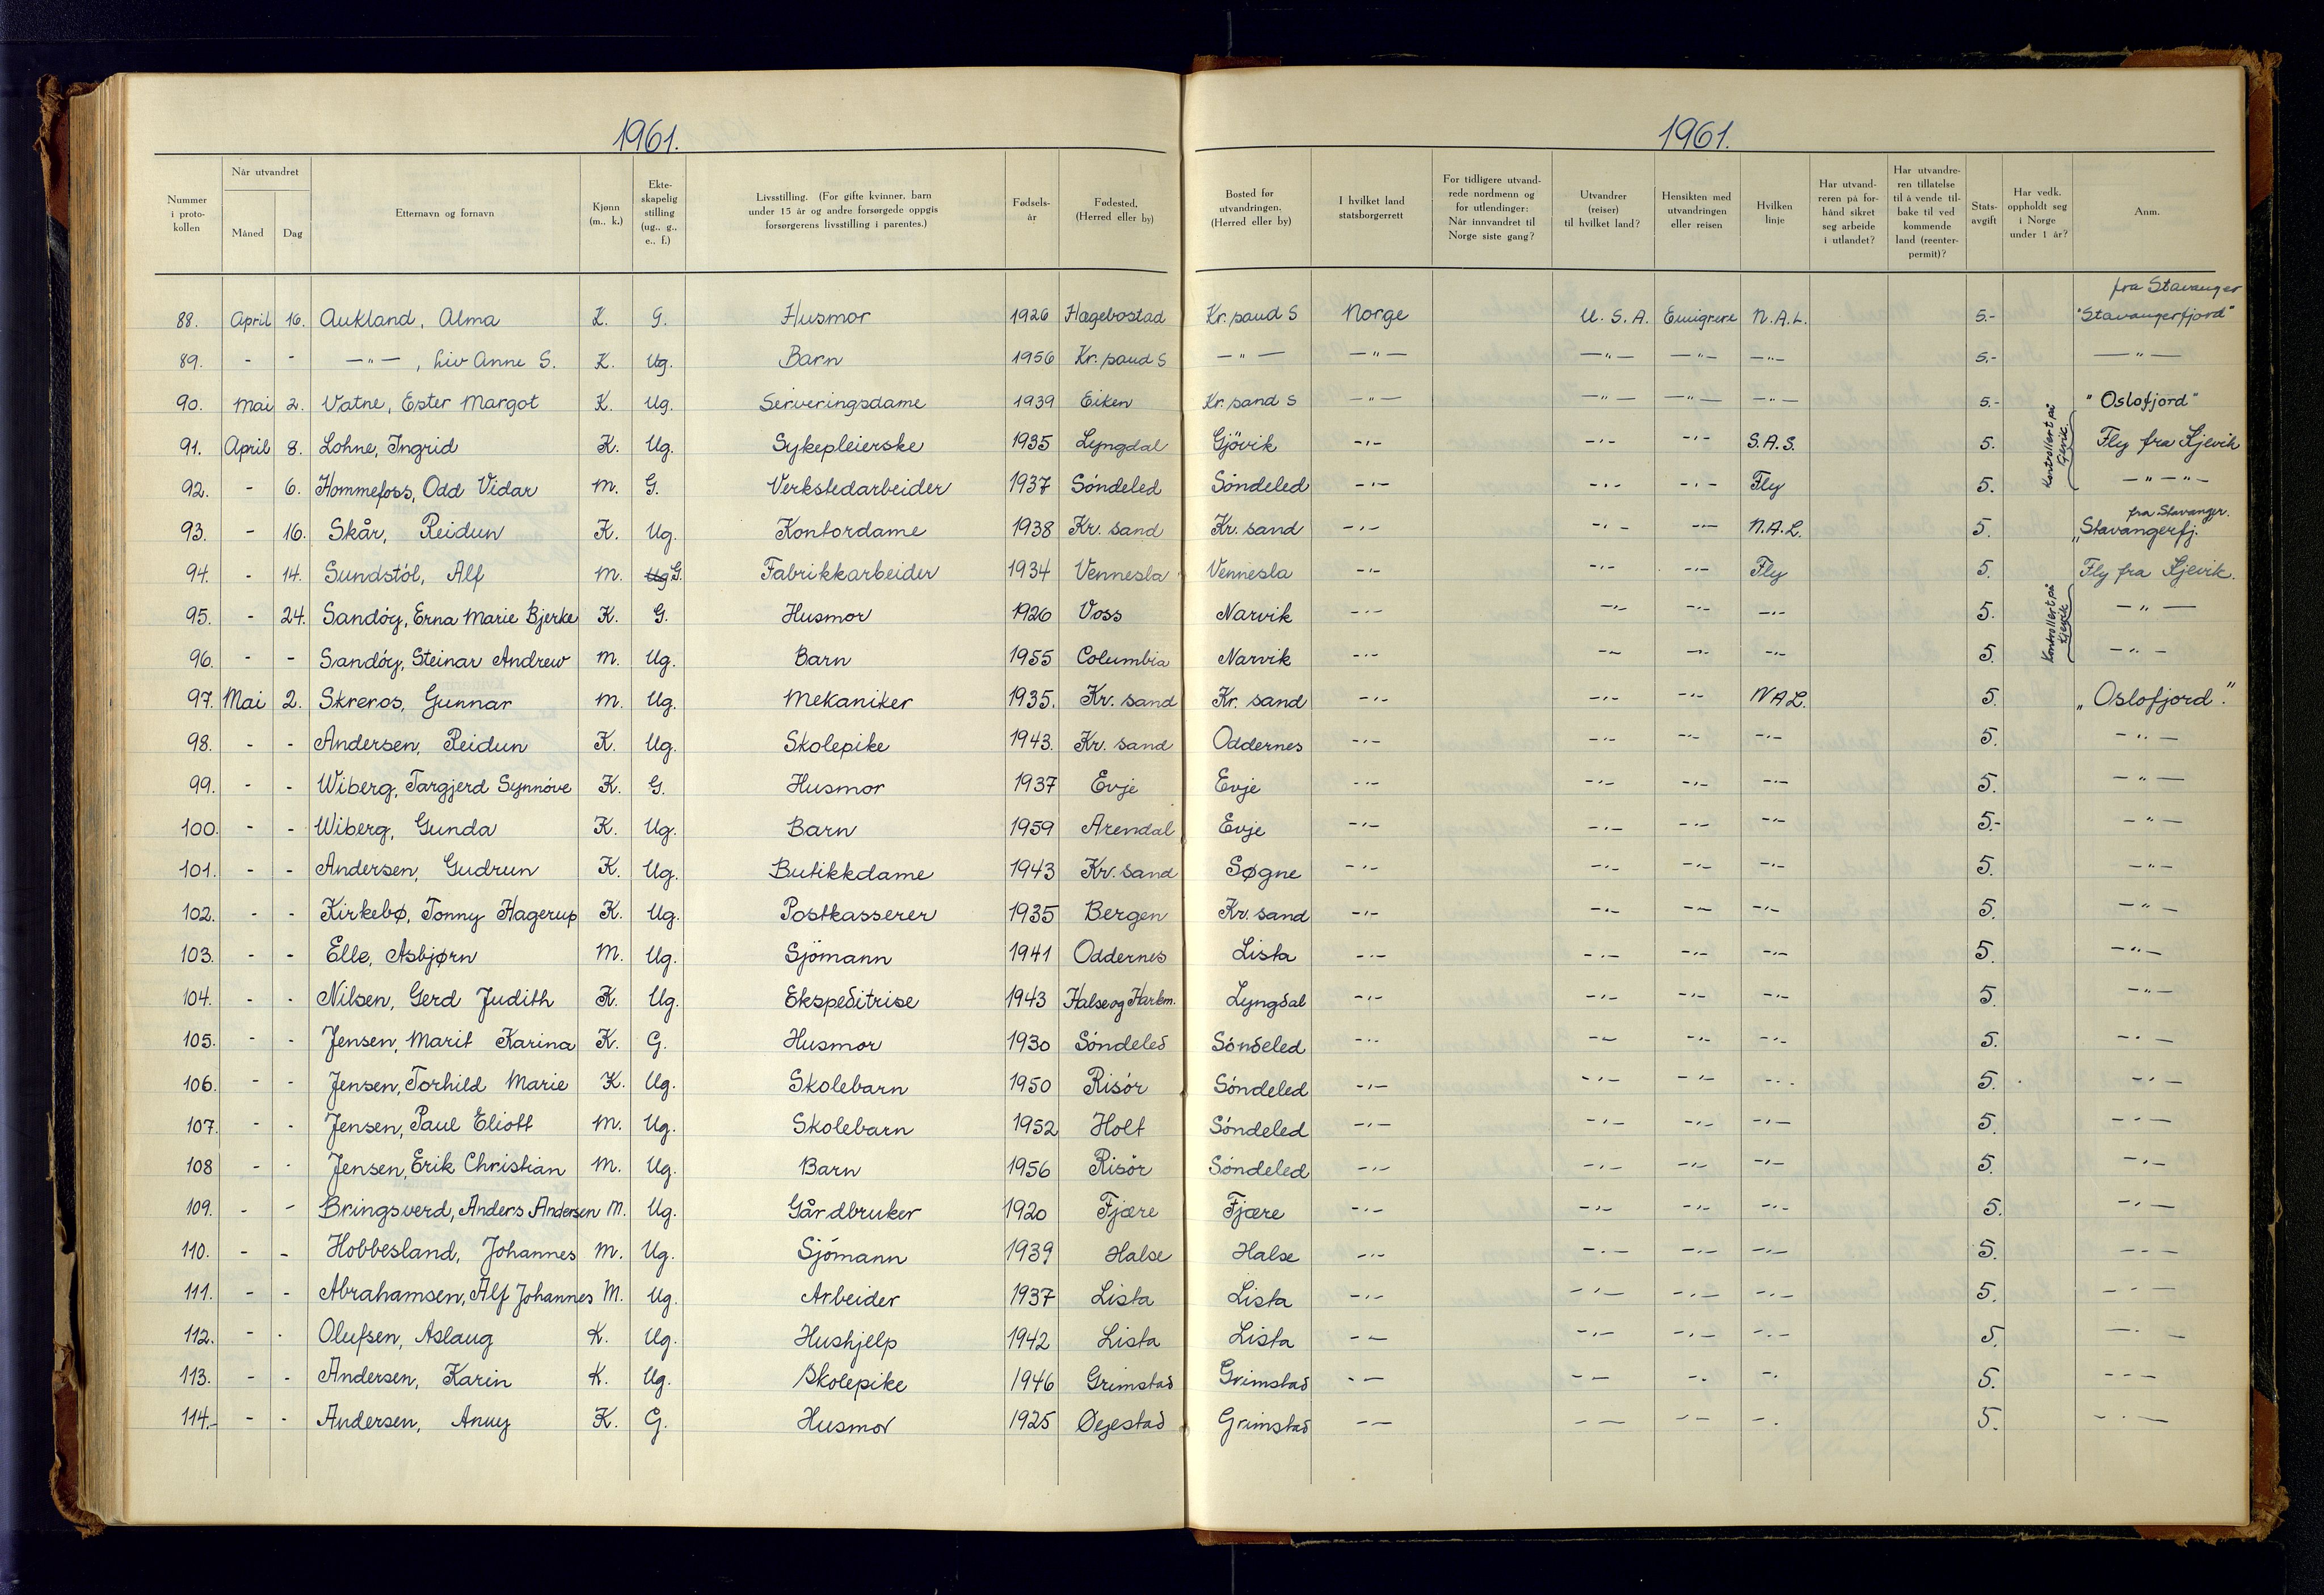 1961.
1961.
Nummer i proto-kollen | Når utvandret | Måned | Dag | Etternavn og fornavn | Kjønn (m., k.) | Ekte-skapelig stilling (ug., g., e., f.) | Livsstilling. (For gifte kvinner, barn under 15 år og andre forsørgede oppgis forsørgerens livsstilling i parentes.) | Fødsels-år | Fødested, (Herred eller by) | Bosted før utvandringen. (Herred eller by) | I hvilket land statsborgerrett | For tidligere utvand-rede nordmenn og for utlendinger: Når innvandret til Norge siste gang? | Utvandrer (reiser) til hvilket land? | Hensikten med utvandringen eller reisen | Hvilken linje | Har utvand-reren på for-hånd sikret seg arbeide i utlandet? | Har utvandre-ren tillatelse til å vende til-bake til ved kommende land (reenter-permit)? | Stats-avgift | Har vedk. oppholdt seg i Norge under 1 år? | Anm.
88. April 16. Aukland, Alma K. G. Husmor 1926 Hægebostad Kr.sand S Norge U.S.A. Emigrere N.A.L. 5.- fra Stavanger "Stavangerfjord"
89. - - —"— , Liv Anne S. K. Ug. Barn 1956 Kr.sand S —"— —"— —"— —"— —"— 5.- —"—
90. Mai 2. Vatne, Ester Margot K. Ug. Serveringsdame 1939 Eiken Kr.sand S —"— —"— —"— —"— 5.- "Oslofjord"
91. April 8. Lohne, Ingrid K. Ug. Sykepleierske 1935 Lyngdal Gjövik -"- -"- -"- S.A.S. 5. Kontrollert på Kjevik. Fly fra Kjevik
92. - 6. Hommefoss, Odd Vidar M. G. Verkstedarbeider 1937 Söndeled Söndeled -"- -"- -"- Fly 5. —"—"—
93. - 16. Skår, Reidun K. Ug. Kontordame 1938 Kr. sand Kr. sand -"- -"- -"- N.A.L. 5. fra Stavanger. "Stavangerfj.
94. - 14. Sundstöl, Alf M. Ug G. Fabrikkarbeider 1934 Vennesla Vennesla -"- -"- -"- Fly 5. Fly fra Kjevik.
95. - 24. Sandöy, Erna Marie Bjerke K. G. Husmor 1926 Voss Narvik -"- -"- -"- -"- 5. Kontrollert på Kjevik —"—
96. - - Sandöy, Steinar Andrew M. Ug. Barn 1955 Columbia Narvik -"- -"- -"- -"- 5. —"—
97. Mai 2. Skreros, Gunnar M. Ug. Mekaniker 1935. Kr. sand Kr. sand -"- -"- -"- NAL. 5. "Oslofjord".
98. - - Andersen, Reidun K. Ug. Skolepike 1943. Kr. sand Oddernes -"- -"- -"- -"- 5. —"—
99. - - Wiberg, Targjerd Synnöve K. G. Husmor 1937 Evje Evje -"- -"- -"- -"- 5. —"—
100. - - Wiberg, Gunda K. Ug. Barn 1959 Arendal Evje -"- -"- -"- -"- 5.- —"—
101. - - Andersen, Gudrun K. Ug. Butikkdame 1943 Kr. sand Søgne -"- -"- -"- -"- 5. —"—
102. - - Kirkebø, Tonny Hagerup K. Ug. Postkasserer 1935 Bergen Kr. sand -"- -"- -"- -"- 5. —"—
103. - - Elle, Asbjørn M. Ug. Sjömann 1941 Oddernes Lista -"- -"- -"- -"- 5. —"—
104. - - Nilsen, Gerd Judith K. Ug. Ekspeditrise 1943 Halse og Harkm. Lyngdal -"- -"- -"- -"- 5. —"—
105. - - Jensen, Marit Karina K. G. Husmor 1930 Söndeled Söndeled -"- -"- -"- -"- 5. —"—
106. - - Jensen, Torhild Marie K. Ug. Skolebarn 1950 Risör Söndeled -"- -"- -"- -"- 5. —"—
107. - - Jensen, Paul Eliott M. Ug. Skolebarn 1952 Holt Söndeled -"- -"- -"- -"- 5. —"—
108 - - Jensen, Erik Christian M. Ug. Barn 1956 Risör Söndeled -"- -"- -"- -"- 5. —"—
109. - - Bringsverd, Anders Andersen M. Ug. Gårdbruker 1920 Fjære Fjære -"- -"- -"- -"- 5. —"—
110. - - Hobbesland, Johannes M. Ug. Sjömann 1939 Halse Halse -"- -"- -"- -"- 5. —"—
111. - - Abrahamsen, Alf Johannes M. Ug. Arbeider 1937 Lista Lista -"- -"- -"- -"- 5. —"—
112. - - Olufsen, Aslaug K. Ug. Hushjelp 1942 Lista Lista -"- -"- -"- -"- 5. —"—
113. - - Andersen, Karin K. Ug. Skolepike 1946 Grimstad Grimstad -"- -"- -"- -"- 5. —"—
114.- - - Andersen, Anny K. G. Husmor 1925 Øyestad Grimstad -"- -"- -"- -"- 5. —"—